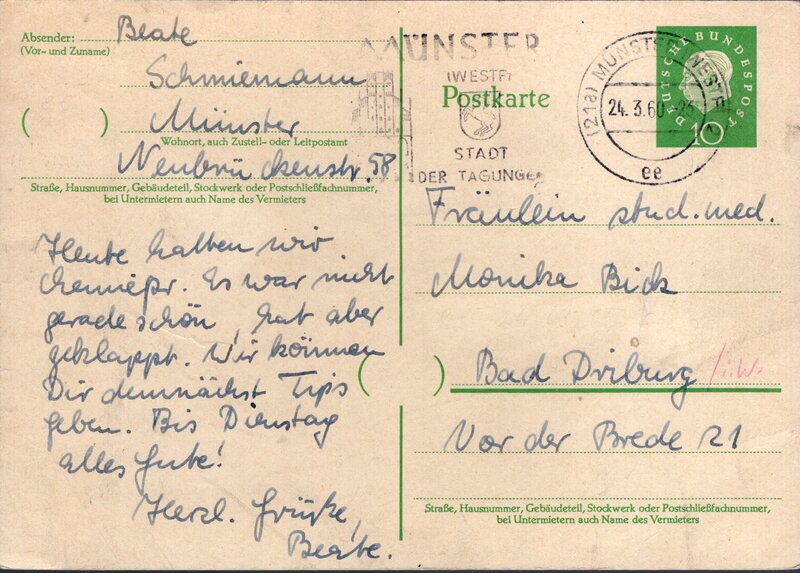 Absender:
(Vor- und Zuname)
Beate
Schmiemann
Münster
Wohnort, auch Zustell- oder Leitpostamt
Neubrückenstr. 58
Straße, Hausnummer, Gebäudeteil, Stockwerk oder Postschließfachnummer,
bei Untermietern auch Name des Vermieters
Heute hatten wir
chemiepr. Es war nicht
gerade schön, hat aber
geklappt. Wir können
Dir demnächst Tips
geben. Bis Dienstag
alles Gute!
Herzl. Grüße,
Beate.
MÜNSTER
(WESTF)
STADT
DER TAGUNGEN
Postkarte
(21a) MÜNSTER (WESTF)
24. 3. 60
ee
DEUTSCHE BUNDESPOST
10
Fräulein stud. med.
Monika Bick
Bad Driburg /i.W.
Vor der Brede 21
Straße, Hausnummer, Gebäudeteil, Stockwerk oder Postschließfachnummer,
bei Untermietern auch Name des Vermieters